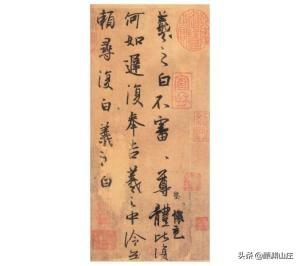 羲之白不審尊體比復
何如遲復奉告羲之中冷無
賴尋復白羲之白
懷充
头条 山庄